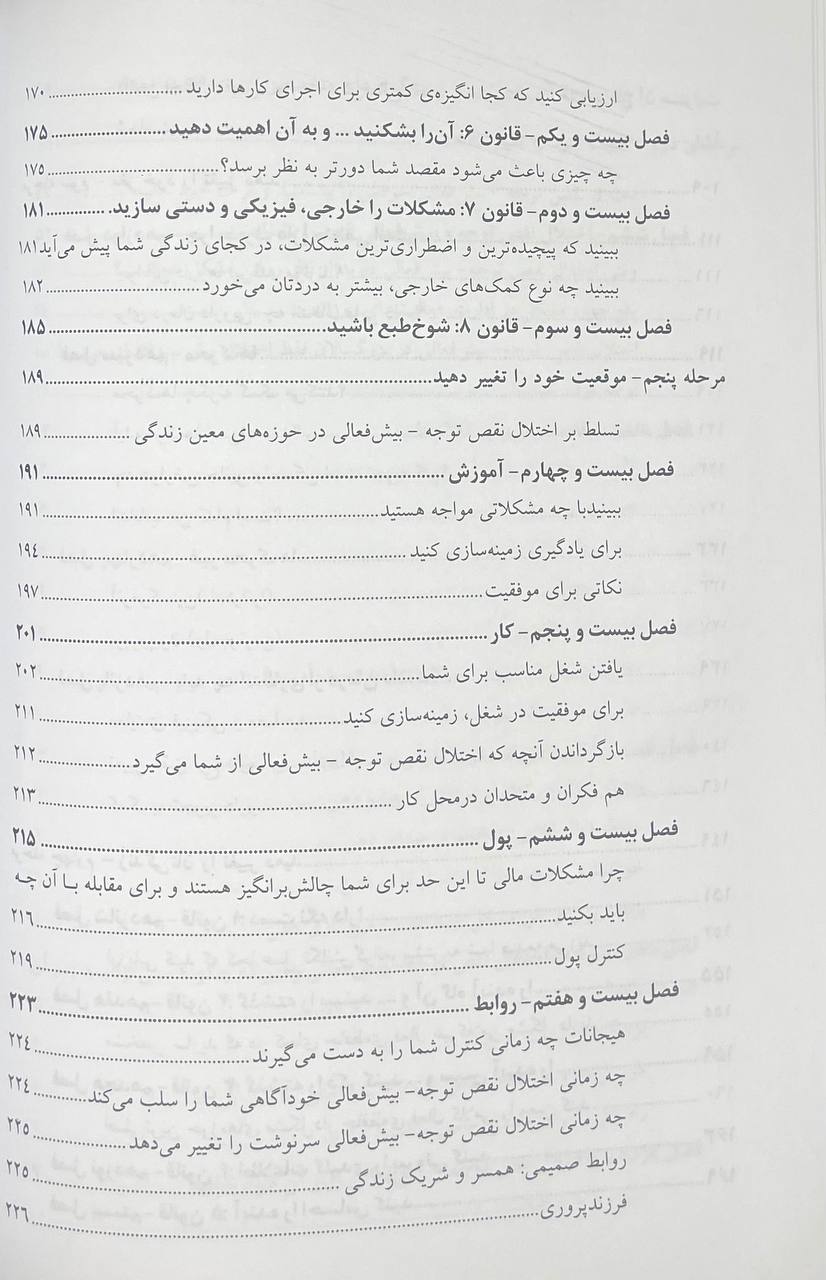 ارزیابی کنید که کجا انگیزه‌ی کمتری برای اجرای کارها دارید ............................ ۱۷۰
فصل بیست و یکم- قانون ۶: آن‌را بشکنید ... و به آن اهمیت دهید ...................... ۱۷۵
چه چیزی باعث می‌شود مقصد شما دورتر به نظر برسد؟ ............................ ۱۷۵
فصل بیست و دوم- قانون ۷: مشکلات را خارجی، فیزیکی و دستی سازید. .............. ۱۸۱
ببینید که پیچیده‌ترین و اضطراری‌ترین مشکلات، در کجای زندگی شما پیش می‌آید ۱۸۱
ببینید چه نوع کمک‌های خارجی، بیشتر به دردتان می‌خورد ............................ ۱۸۲
فصل بیست و سوم- قانون ۸: شوخ‌طبع باشید ............................ ۱۸۵
مرحله پنجم- موقعیت خود را تغییر دهید ............................ ۱۸۹
تسلط بر اختلال نقص توجه - بیش‌فعالی در حوزه‌های معین زندگی .................... ۱۸۹
فصل بیست و چهارم- آموزش ............................ ۱۹۱
ببینیدبا چه مشکلاتی مواجه هستید ............................ ۱۹۱
برای یادگیری زمینه‌سازی کنید ............................ ۱۹۴
نکاتی برای موفقیت ............................ ۱۹۷
فصل بیست و پنجم- کار ............................ ۲۰۱
یافتن شغل مناسب برای شما ............................ ۲۰۲
برای موفقیت در شغل، زمینه‌سازی کنید ............................ ۲۱۱
بازگرداندن آنچه که اختلال نقص توجه - بیش‌فعالی از شما می‌گیرد .................... ۲۱۲
هم فکران و متحدان درمحل کار ............................ ۲۱۳
فصل بیست و ششم- پول ............................ ۲۱۵
چرا مشکلات مالی تا این حد برای شما چالش‌برانگیز هستند و برای مقابله با آن چه
باید بکنید ............................ ۲۱۶
کنترل پول ............................ ۲۱۹
فصل بیست و هفتم- روابط ............................ ۲۲۳
هیجانات چه زمانی کنترل شما را به دست می‌گیرند ............................ ۲۲۴
چه زمانی اختلال نقص توجه- بیش‌فعالی خودآگاهی شما را سلب می‌کند .................... ۲۲۴
چه زمانی اختلال نقص توجه- بیش‌فعالی سرنوشت را تغییر می‌دهد .................... ۲۲۵
روابط صمیمی: همسر و شریک زندگی ............................ ۲۲۵
فرزندپروری ............................ ۲۲۶